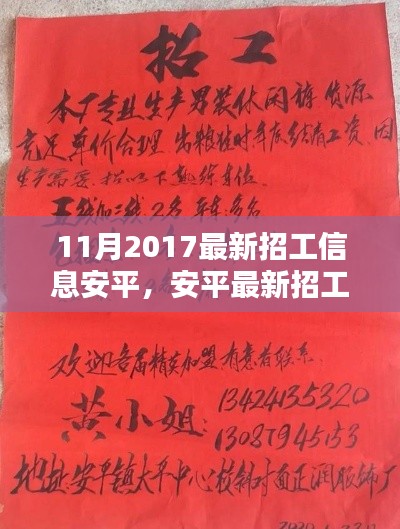 招工
本厂专业生产男装休闲裤货源
充足单价合理 出粮准时年底结清工资.因
生产需要.招以下熟练车位
11月2017最新招工信
息安平，安平最新招工
欢迎各届精英加盟.有意者联系.
黄小姐:13424135320
地址:安平镇大平中心校斜对面正润服饰厂